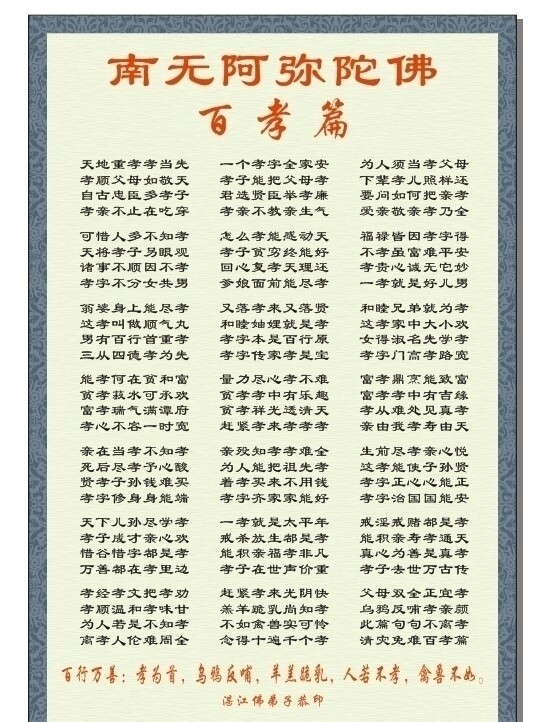 南无阿弥陀佛
百孝篇
天地重孝孝当先 一个孝字全家安 为人须当孝父母
孝顺父母如敬天 孝子能把父母孝 下辈孝儿照样还
自古忠臣多孝子 君选贤臣举孝廉 要问如何把亲孝
孝亲不止在吃穿 孝亲不教亲生气 爱亲敬亲孝乃全
可惜人多不知孝 怎么孝能感动天 福禄皆因孝字得
天将孝子另眼观 孝子贫穷终能好 不孝虽富难平安
诸事不顺因不孝 回心复孝天理还 孝贵心诚无它妙
孝字不分女共男 爹娘面前能尽孝 一孝就是好儿男
翁婆身上能尽孝 又落孝来又落贤 和睦兄弟就为孝
这孝叫做顺气丸 和睦妯娌就是孝 这孝家中大小欢
男有百行首重孝 孝字本是百行原 女得淑名先学孝
三从四德孝为先 孝字传家孝是宝 孝字门高孝路宽
能孝何在贫和富 量力尽心孝不难 富孝鼎烹能致富
贫孝菽水可承欢 富孝孝中有乐趣 贫孝孝中有吉缘
富孝瑞气满潭府 贫孝祥光透清天 孝从难处见真孝
孝心不容一时宽 赶紧孝来孝孝孝 亲由我孝寿由天
亲在当孝不知孝 亲殁知孝孝难全 生前尽孝亲心悦
死后尽孝予心酸 为人能把祖先孝 这孝能使子孙贤
贤孝子孙钱难买 着孝买来不用钱 孝字正心心能正
孝字修身身能端 孝字齐家家能好 孝字治国国能安
天下儿孙尽学孝 一孝就是太平年 戒淫戒赌都是孝
孝子成才亲心欢 戒杀放生都是孝 能积亲寿孝通天
惜谷惜字都是孝 能积亲福孝非凡 真心为善是真孝
万善都在孝里边 孝子在世声价重 孝子去世万古传
孝经孝文把孝劝 赶紧孝来光阴快 父母双全正宜孝
孝顺温和孝味甘 羔羊跪乳尚知孝 乌鸦反哺孝亲颜
为人若是不知孝 不如禽兽实可怜 此篇句句不离孝
离孝人伦难周全 念得十遍千个孝 清灾免难百孝篇
百行万善：孝为首，乌鸦反哺，羊羔跪乳，人若不孝，禽兽不如。
湛江佛弟子恭印